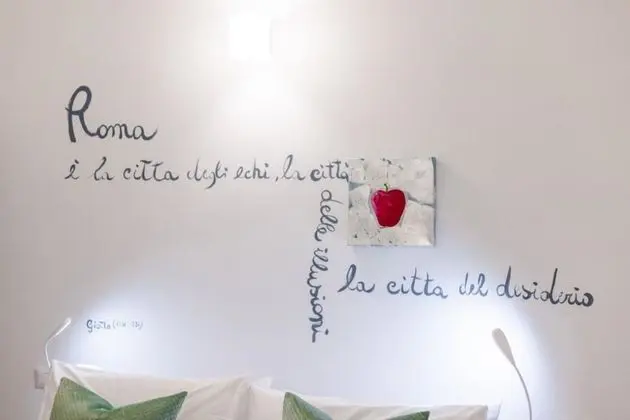 Roma
è la città degli echi, la città
delle illusioni
la città del desiderio